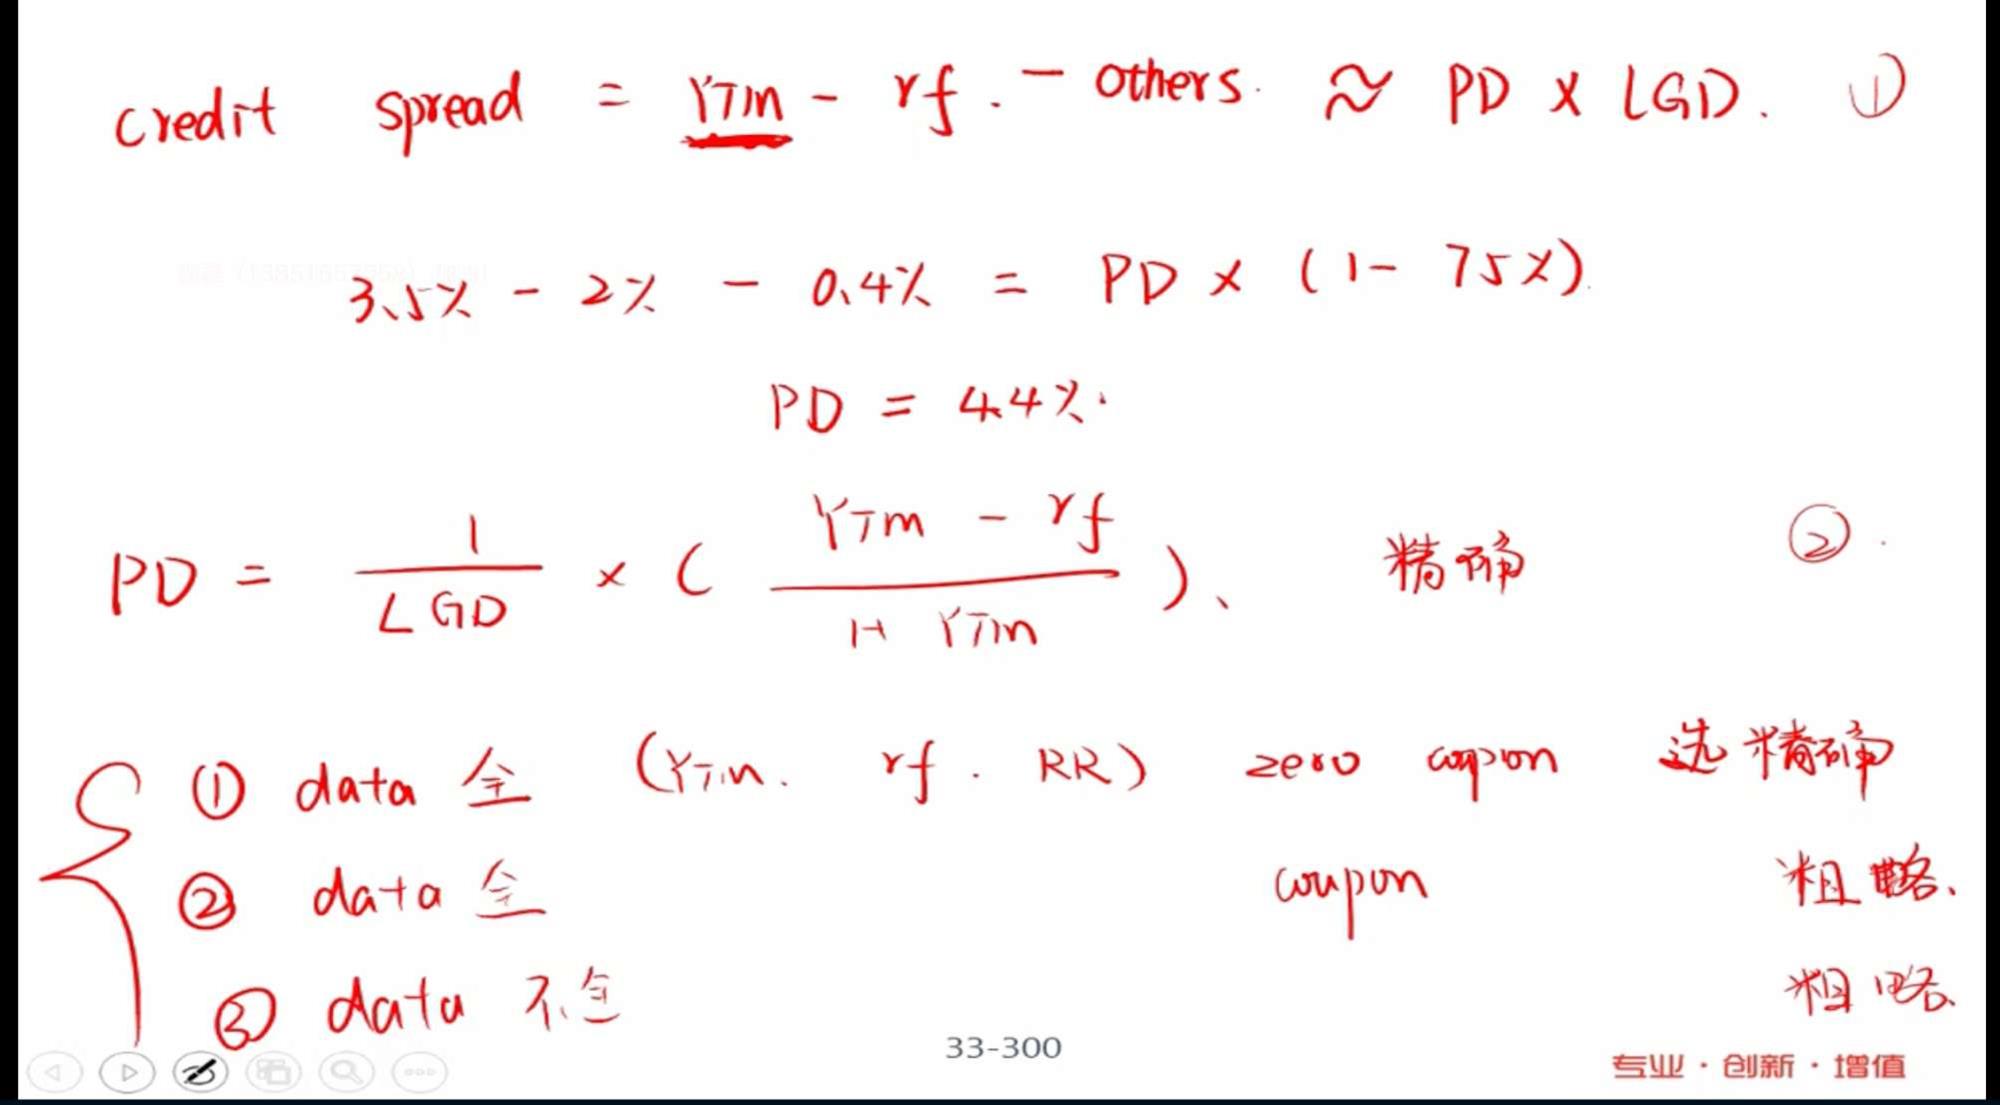 credit spread = YTM - rf. - others. ≈ PD × LGD. ①
3.5% - 2% - 0.4% = PD × (1 - 75%)
PD = 4.4%.
PD = 1/LGD × ( YTM - rf / 1+ YTM )、 精确 ②
① data 全 (YTM. rf. RR) zero coupon 选精确
② data 全 coupon 粗略.
③ data 不全 粗略.
33-300
专业·创新·增值